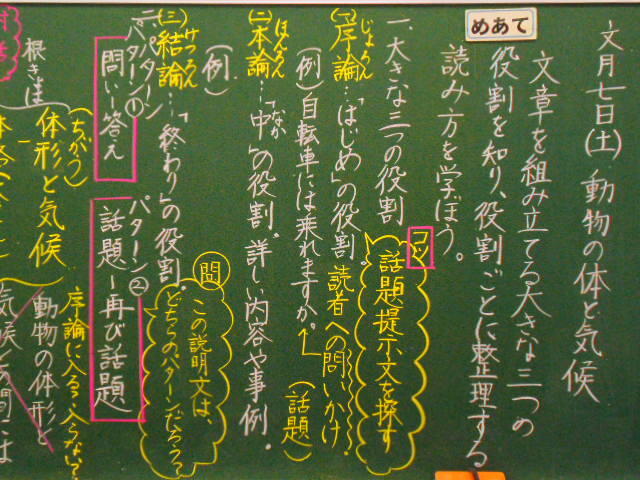 文月七日(土) 動物の体と気候
めあて
文章を組み立てる大きな三つの
役割を知り、役割ごとに整理する
読み方を学ぼう。
一、大きな三つの役割
コツ
話題提示文を探す
(一)序論…「はじめ」の役割。
じょろん
読者への問いかけ
(例)自転車には乗れますか。
(話題)
(二)本論…「中」の役割。詳しい内容や事例。
ほんろん
なか
(例)
(三)結論…「終わり」の役割。
けつろん
問
この説明文は、
どちらのパターンだろう?
二、パターン
パターン①
問い―答え
パターン②
話題―再び話題
序論に入る・入らない?
根きょ
(ちがう)
体形と気候
動物の体形と